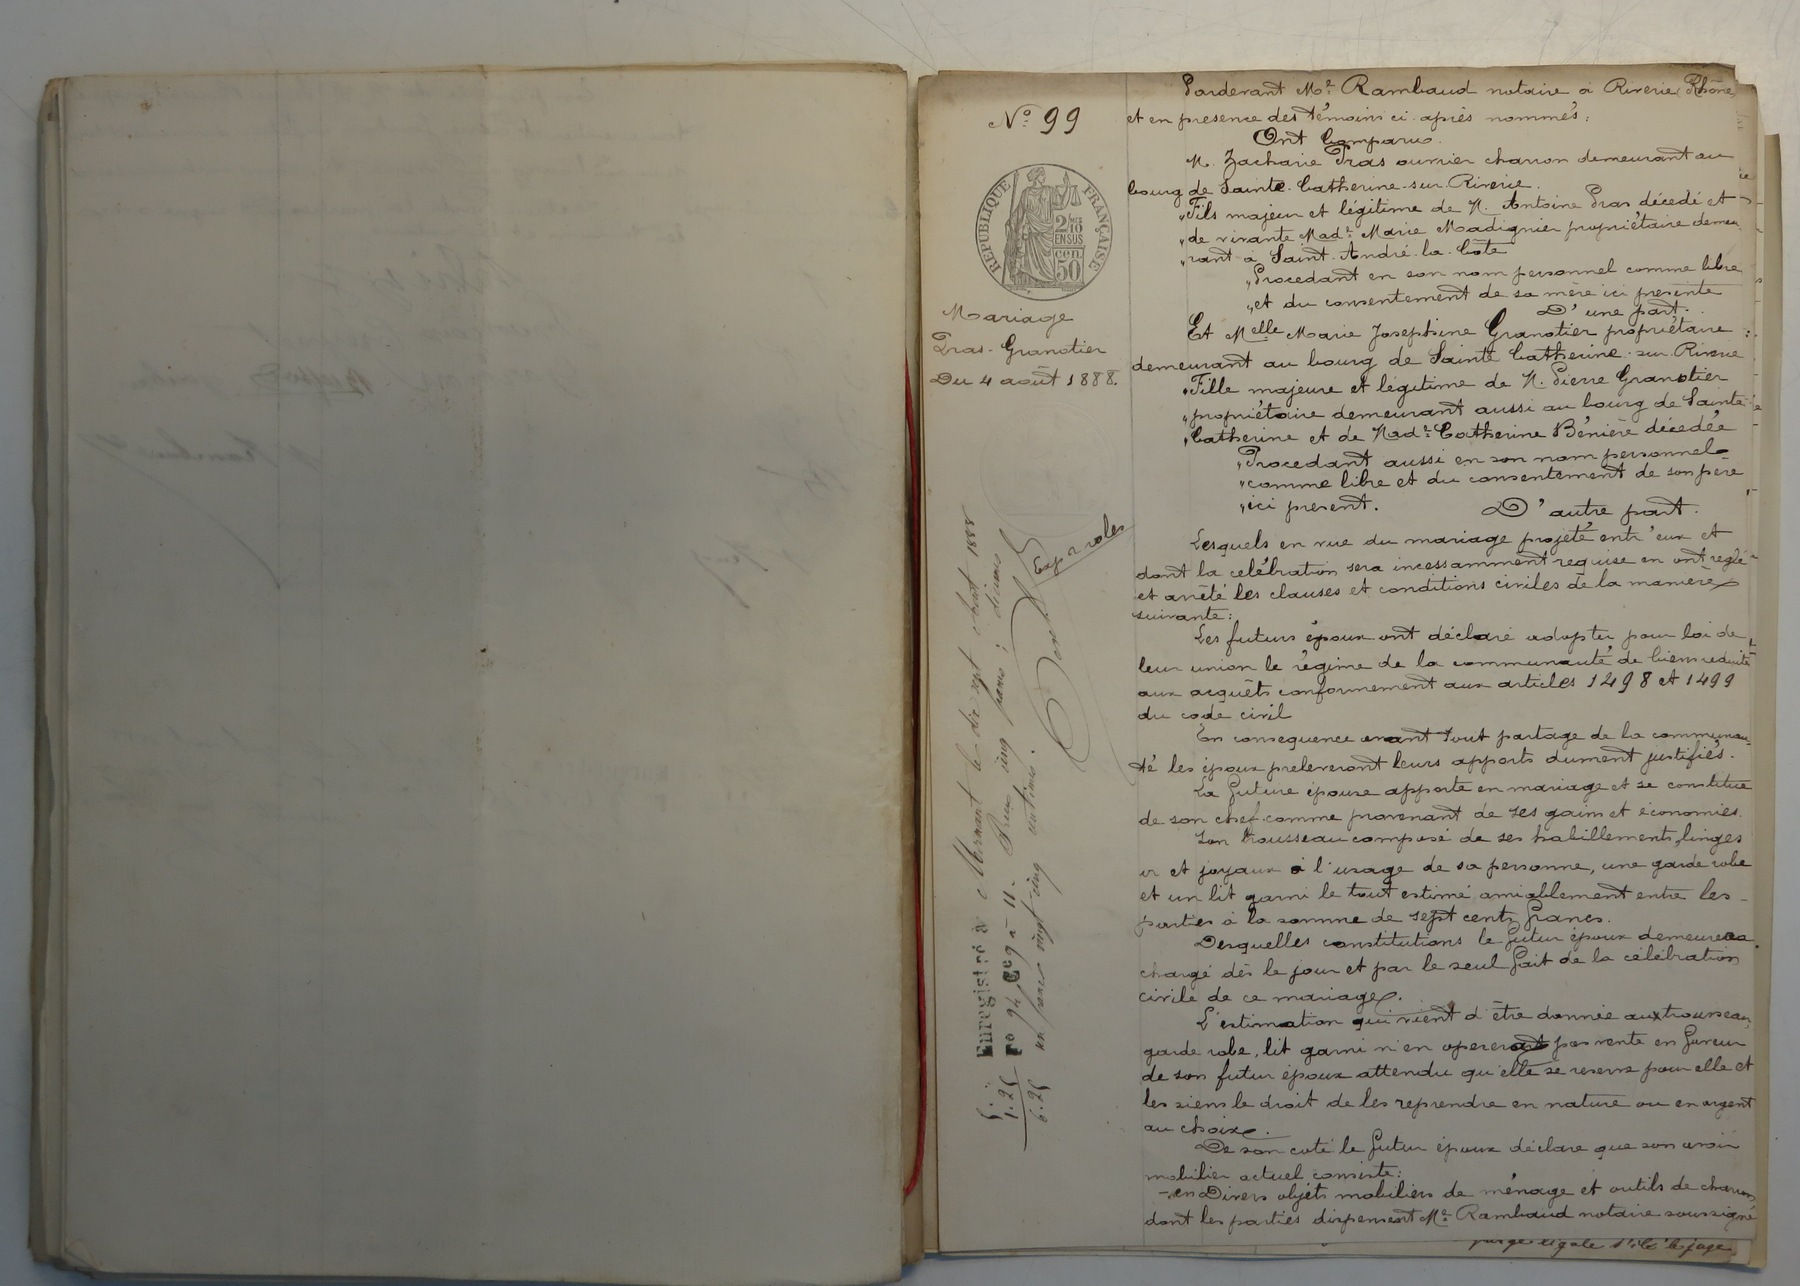 Pardevant Me Rambaud notaire à Riverie (Rhône)
et en presence des témoins ci-après nommés:
Ont Comparu
M. Zacharie Gras ouvrier charron demeurant au
bourg de Sainte-Catherine-sur-Riverie.
"Fils majeur et légitime de M. Antoine Gras décédé et
"de vivante Made Marie Madignier propriétaire demeu
"rant à Saint-André-la-Côte
"Procedant en son nom personnel comme libre
"et du consentement de sa mère ici presente
D'une part.
Et Melle Marie Josephine Granotier propriétaire
demeurant au bourg de Sainte Catherine-sur-Riverie
"Fille majeure et légitime de M. Pierre Granotier
"propriétaire demeurant aussi au bourg de Sainte
"Catherine et de Made Catherine Bénière décedée
"Procedant aussi en son nom personnel
"comme libre et du consentement de son père
"ici present. D'autre part.
Lesquels en vue du mariage projeté entr'eux et
dont la celébration sera incessamment requise en ont reglé
et arrêté les clauses et conditions civiles de la manière
suivante:
Les futurs époux ont déclaré adopter pour loi de
leur union le régime de la communauté de biens reduite
aux acquêts conformement aux articles 1498 et 1499
du code civil
En consequence avant tout partage de la communau-
té les époux preleveront leurs apports dument justifiés.
La future épouse apporte en mariage et se constitue
de son chef comme provenant de ses gains et économies.
Son trousseau composé de ses habillements, linges
or et joyaux à l'usage de sa personne, une garde robe
et un lit garni le tout estimé amiablement entre les
parties à la somme de sept cents francs.
Desquelles constitutions le futur époux demeurera
chargé dès le jour et par le seul fait de la célébration
civile de ce mariage.
L'estimation qui vient d'être donnée aux trousseau,
garde robe, lit garni n'en operera pas vente en faveur
de son futur époux attendu qu'elle se reserve pour elle et
les siens le droit de les reprendre en nature ou en argent
au choix.
De son coté le futur époux déclare que son avoir
mobilier actuel consiste:
-en Divers objets mobiliers de ménage et outils de charron
dont les parties dispensent Me Rambaud notaire soussigné
No 99
RÉPUBLIQUE FRANÇAISE
2/10
EN SUS
cen.
50
Mariage
Gras-Granotier
Du 4 août 1888.
Exp 2 roles
Enregistré à Mornant le dix sept août 1888
Fo 94 Ce 9 à 11. Reçu cinq francs; decimes
un franc vingt cinq centimes.
5. "
1.25
6.25